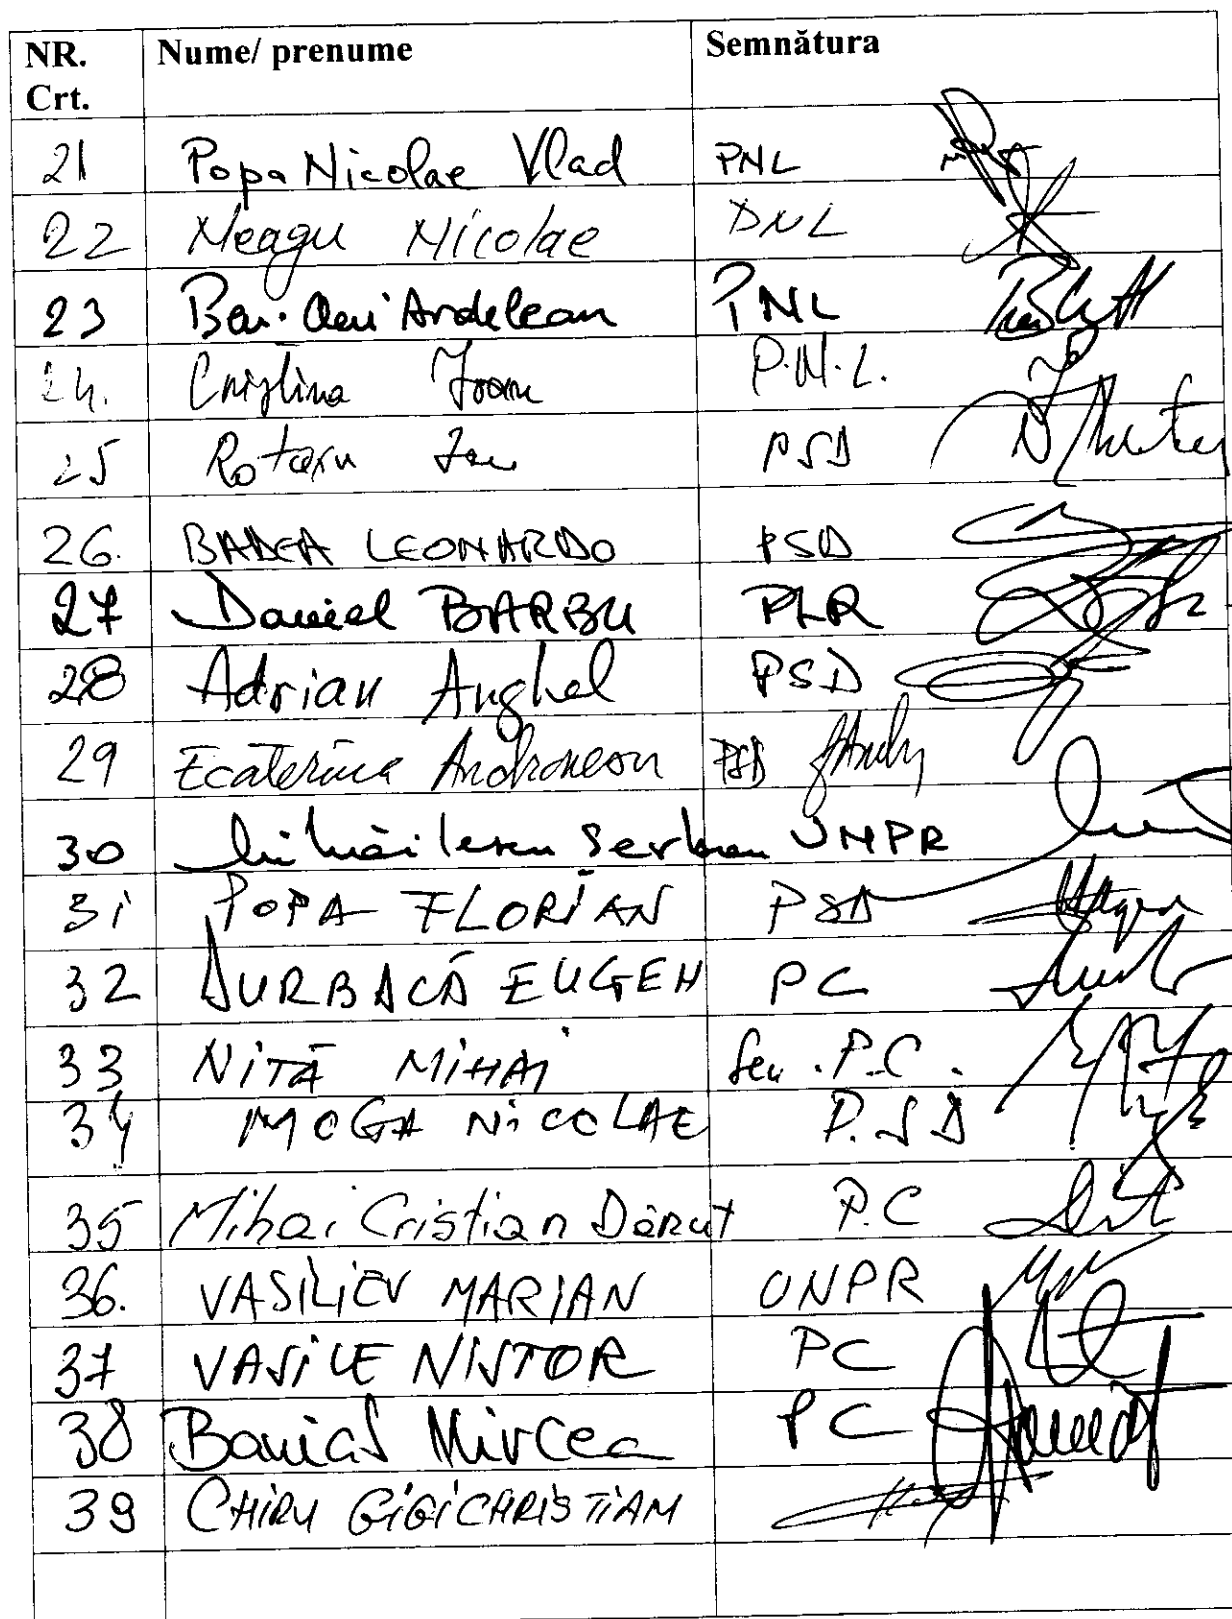 NR. Crt. Nume/ prenume Semnătura
21 Popa Nicolae Vlad PNL
22 Neagu Nicolae PNL
23 Ben-Oni Ardelean PNL
24. Cristina Ioan P.N.L.
25 Rotaru Ion PSD
26. BADEA LEONARDO PSD
27 Daniel BARBU PLR
28 Adrian Anghel PSD
29 Ecaterina Andronescu PSD
30 Mihăilescu Serban UNPR
31 POPA FLORIAN PSD
32 DURBACĂ EUGEN PC
33 NITĂ MIHAI Sen. P.C.
34 MOGA NICOLAE P.S.D
35 Mihai Cristian Dănuț P.C
36. VASILIEV MARIAN UNPR
37 VASILE NISTOR PC
38 Banias Mircea PC
39 CHIRU GIGI CHRISTIAN